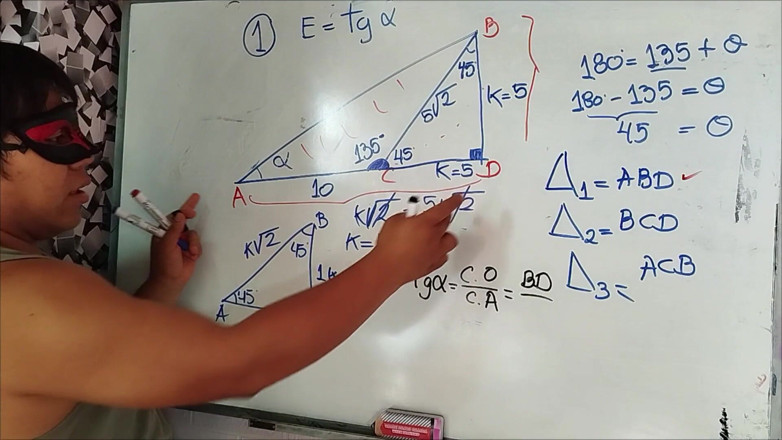 1 E = tg α
B
45
5√2
K=5
135°
45
α
A
10
C
K=5
D
180° = 135 + θ
180° - 135 = θ
45 = θ
Δ1 = ABD ✓
Δ2 = BCD
Δ3 = ACB
K√2
K=
B
K√2
45
45
A
gα = C.O / C.A = BD